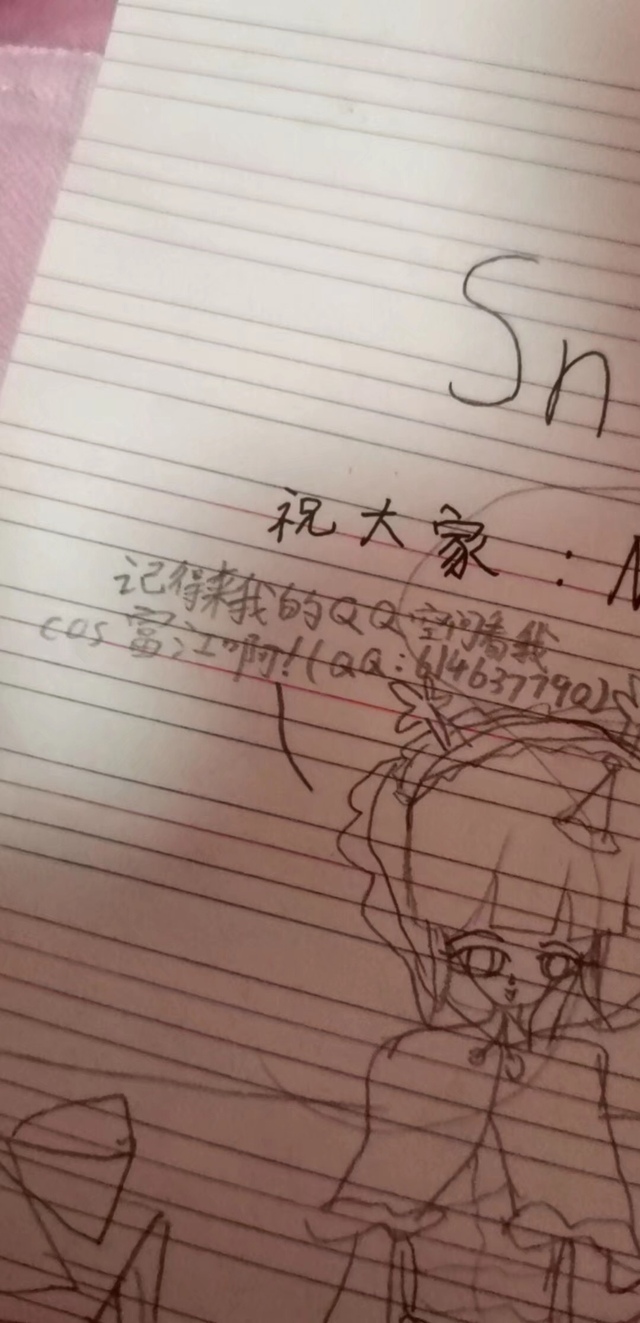 Sn
祝大家：
记得来我的QQ空间看我
cos富江啊！（QQ：614637790）